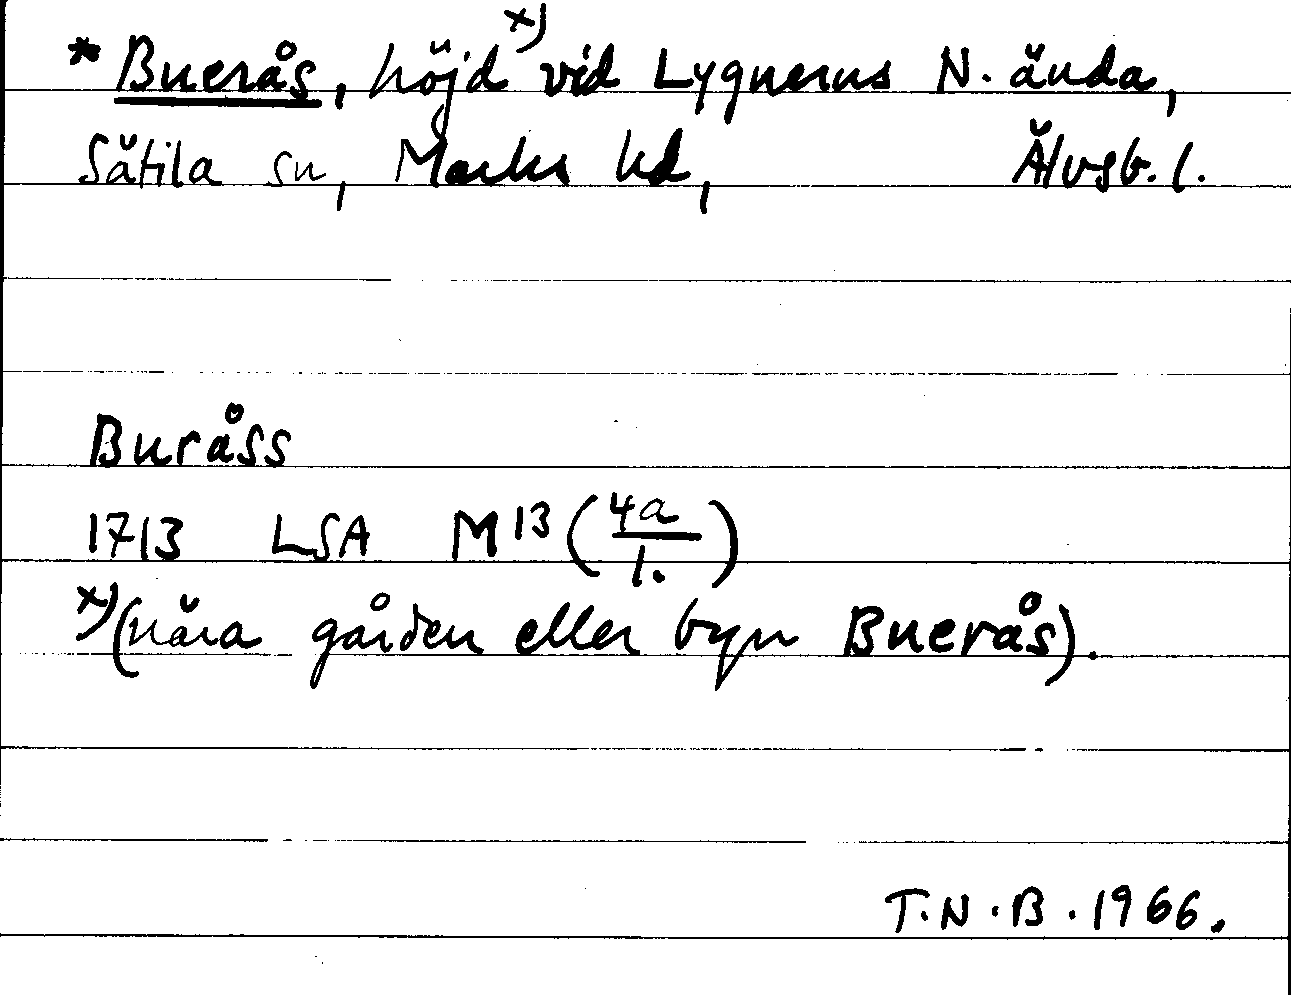 * Buerås, höjd x) vid Lygnerns N. ända,
Sätila sn, Marks hd, Älvsb. l.
Buråss
1713 LSA M13 (4a/1.)
x) (nära gården eller byn Buerås).
T.N.B. 1966.